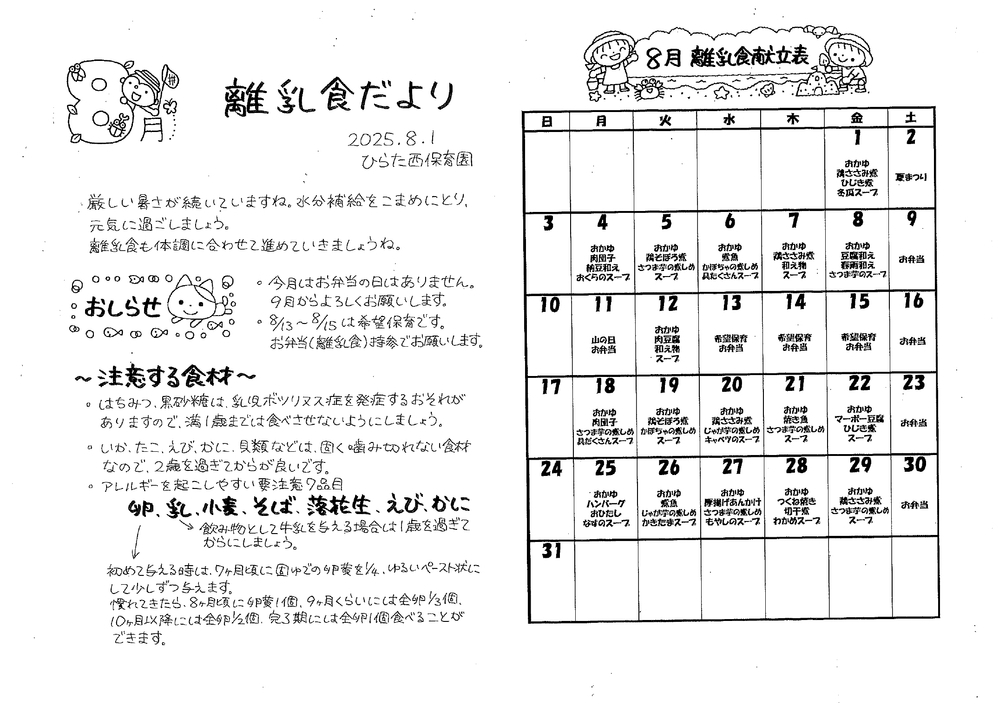 離乳食だより
2025.8.1
ひらた西保育園
厳しい暑さが続いていますね。水分補給をこまめにとり、
元気に過ごしましょう。
離乳食も体調に合わせて進めていきましょうね。
おしらせ
・今月はお弁当の日はありません。
9月からよろしくお願いします。
・8/13～8/15は希望保育です。
お弁当(離乳食)持参でお願いします。
～注意する食材～
・はちみつ、黒砂糖は、乳児ボツリヌス症を発症するおそれが
ありますので、満1歳までは食べさせないようにしましょう。
・いか、たこ、えび、かに、貝類などは、固く噛み切れない食材
なので、2歳を過ぎてからが良いです。
・アレルギーを起こしやすい要注意7品目
卵、乳、小麦、そば、落花生、えび、かに
飲み物として牛乳を与える場合は1歳を過ぎて
からにしましょう。
初めて与える時は、7ヶ月頃に固ゆでの卵黄を1/4、ゆるいペースト状に
して少しずつ与えます。
慣れてきたら、8ヶ月頃に卵黄1個、9ヶ月くらいには全卵1/3個、
10ヶ月以降には全卵1/2個、完了期には全卵1個食べることが
できます。
8月 離乳食献立表
日 月 火 水 木 金 土
1 2
おかゆ
鶏ささみ煮
ひじき煮
冬瓜スープ
夏まつり
3 4 5 6 7 8 9
おかゆ
肉団子
納豆和え
おくらのスープ
おかゆ
鶏そぼろ煮
さつま芋の煮しめ
スープ
おかゆ
煮魚
かぼちゃの煮しめ
具だくさんスープ
おかゆ
鶏ささみ煮
和え物
スープ
おかゆ
豆腐和え
春雨和え
さつま芋のスープ
お弁当
10 11 12 13 14 15 16
山の日
お弁当
おかゆ
肉豆腐
和え物
スープ
希望保育
お弁当
希望保育
お弁当
希望保育
お弁当
お弁当
17 18 19 20 21 22 23
おかゆ
肉団子
さつま芋の煮しめ
具だくさんスープ
おかゆ
鶏そぼろ煮
かぼちゃの煮しめ
スープ
おかゆ
鶏ささみ煮
じゃが芋の煮しめ
キャベツのスープ
おかゆ
焼き魚
さつま芋の煮しめ
スープ
おかゆ
マーボー豆腐
ひじき煮
スープ
お弁当
24 25 26 27 28 29 30
おかゆ
ハンバーグ
おひたし
なすのスープ
おかゆ
煮魚
じゃが芋の煮しめ
かきたまスープ
おかゆ
厚揚げあんかけ
さつま芋の煮しめ
もやしのスープ
おかゆ
つくね焼き
切干煮
わかめスープ
おかゆ
鶏ささみ煮
さつま芋の煮しめ
スープ
お弁当
31